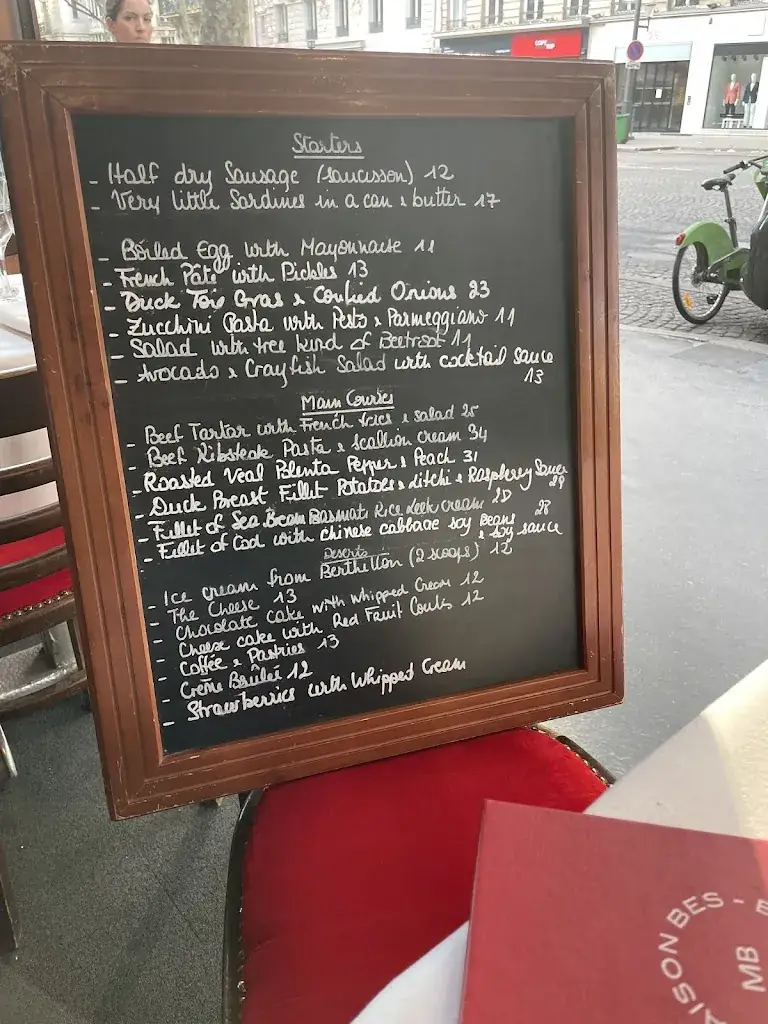 Starters
- Half dry Sausage (saucisson) 12
- Very little Sardines in a can & butter 17
- Boiled Egg with Mayonnaise 11
- French Pâté with Pickles 13
- Duck Foie Gras & Confied Onions 23
- Zucchini Pasta with Pesto & Parmeggiano 11
- Salad with tree kind of Beetroot 11
- Avocado & Crayfish Salad with cocktail sauce
13
Main Courses
- Beef Tartar with French fries & salad 25
- Beef Ribsteak Pasta & Scallion cream 34
- Roasted Veal Polenta Pepper & Peach 31
- Duck Breast Fillet Potatoes & Litchi & Raspberry Sauce
29
- Fillet of Sea Bream Basmati Rice Leek cream 28
- Fillet of Cod with chinese cabbage soy beans
& soy sauce
Deserts
- Ice cream from Berthellon (2 scoops) 12
- The Cheese 13
- Chocolate cake with whipped Cream 12
- Cheese cake with Red Fruit Coulis 12
- Coffée & Pastries 13
- Crème Brûleé 12
- Strawberries with Whipped Cream
MB